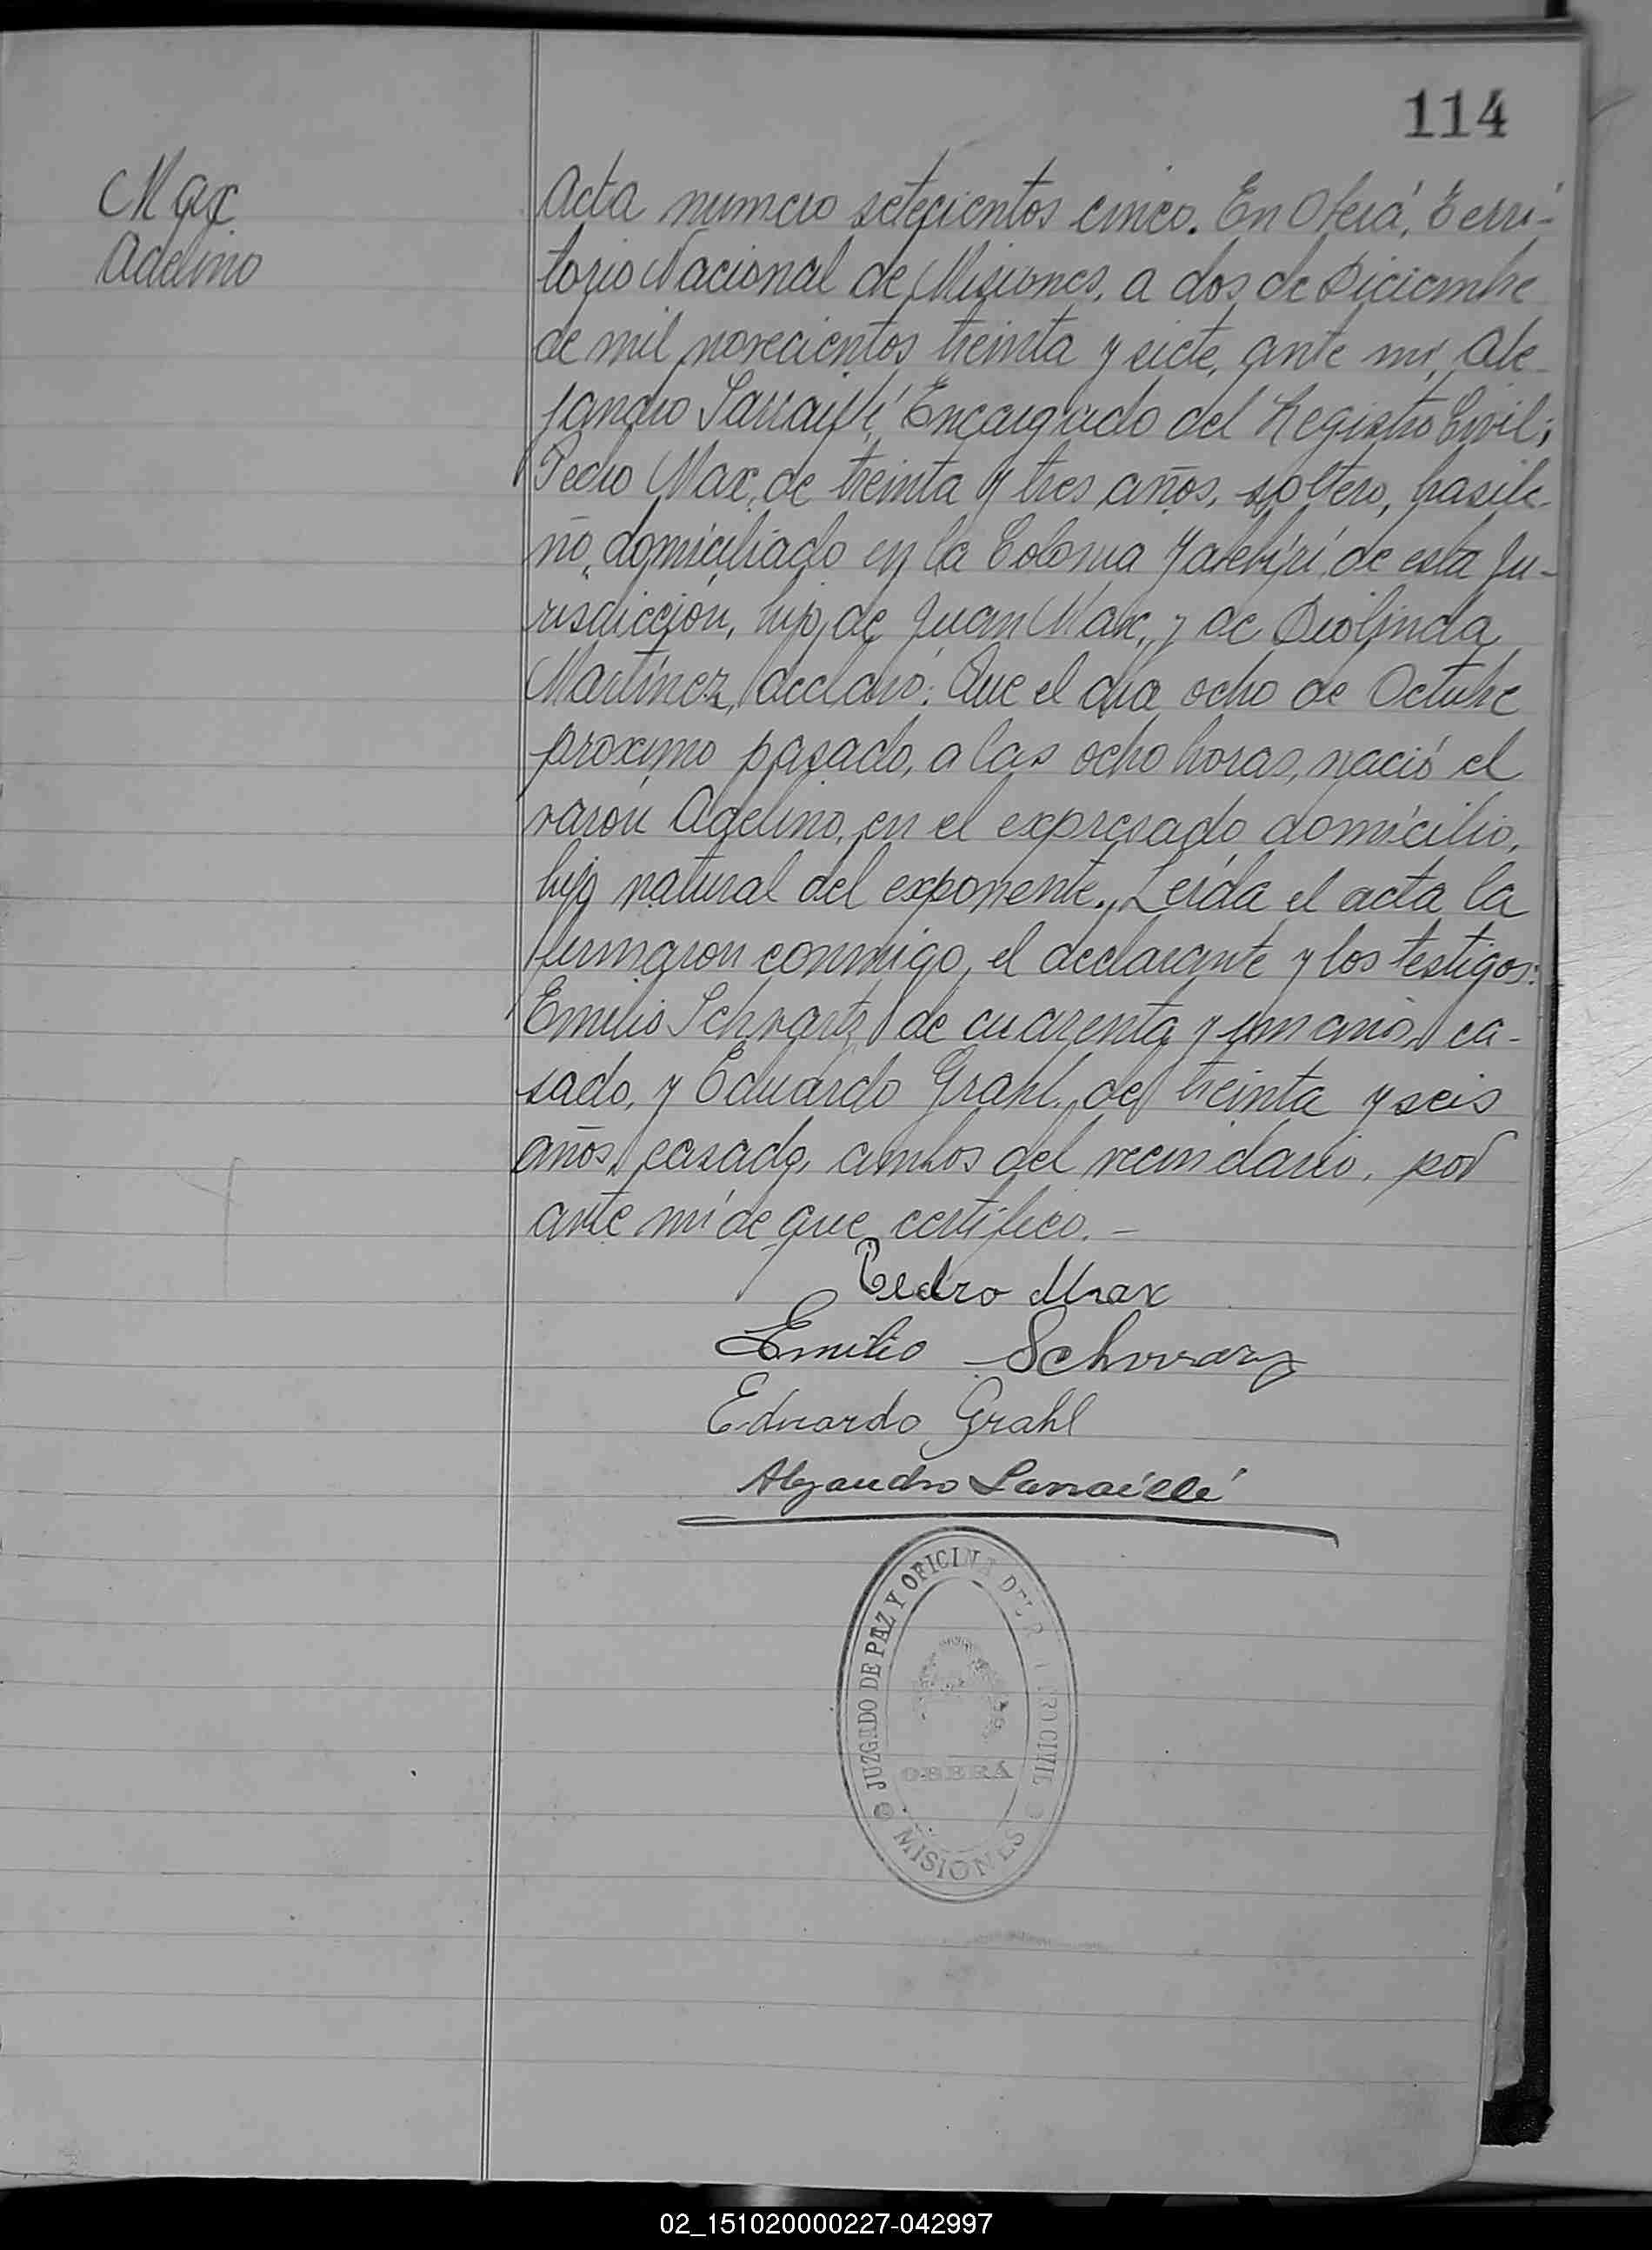 114
Max
Adelino
Acta numero setecientos cinco. En Oberá, Terri-
torio Nacional de Misiones, a dos de Diciembre
de mil novecientos treinta y siete, ante mi, Ale-
jandro Sarraillé Encargado del Registro Civil;
Pedro Max, de treinta y tres años, soltero, brasile-
ño, domiciliado en la Colonia Yabebiri de esta Ju-
risdicción, hijo de Juan Max, y de Diolinda
Martínez, declaró: Que el dia ocho de Octubre
proximo pasado, a las ocho horas, nació el
varón Adelino, en el expresado domicilio,
hijo natural del exponente. Leída el acta la
firmaron conmigo, el declarante y los testigos:
Emilio Schvartz, de cuarenta y un años, ca-
sado, y Eduardo Grahl, de treinta y seis
años, casado, ambos del vecindario, por
ante mí de que certifico. -
Pedro Max
Emilio Schwarz
Eduardo Grahl
Alejandro Sarraillé
JUZGADO DE PAZ Y OFICINA DEL REGISTRO CIVIL
OBERÁ
MISIONES
02_151020000227-042997